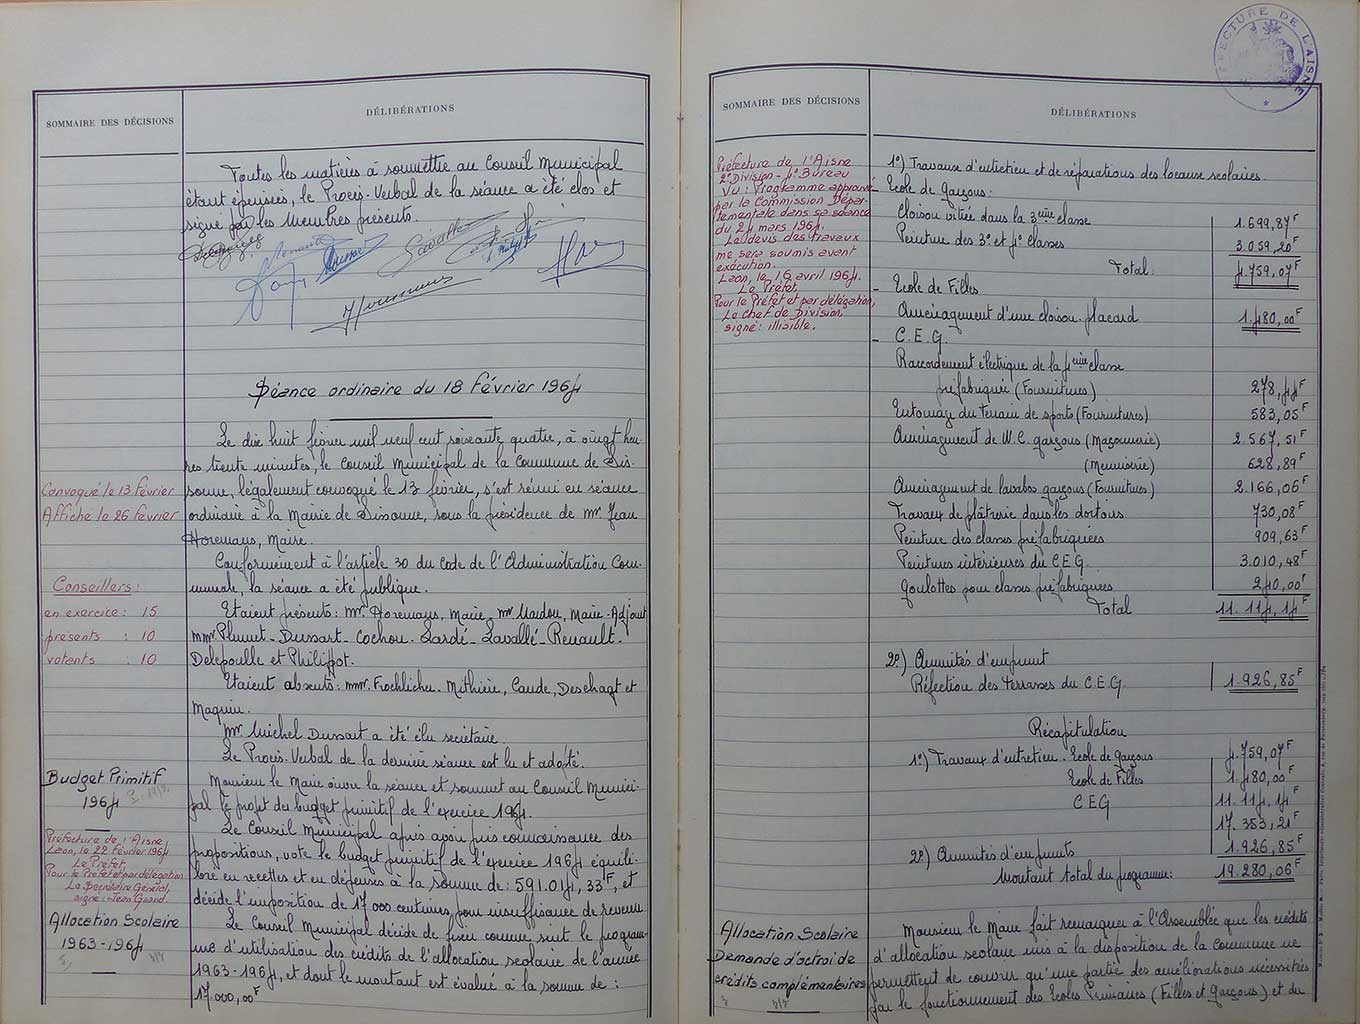 SOMMAIRE DES DÉCISIONS
DÉLIBÉRATIONS
Toutes les matières à soumettre au Conseil Municipal
étant épuisées, le Procès-Verbal de la séance a été clos et
signé par les Membres présents.
Séance ordinaire du 18 Février 1964
Le dix huit février mil neuf cent soixante quatre, à vingt heu-
res trente minutes, le Conseil Municipal de la Commune de Sis-
sonne, légalement convoqué le 13 février, s'est réuni en séance
ordinaire à la Mairie de Sissonne, sous la présidence de Mr Jean
Horemans, Maire.
Convoqué le 13 Février
Affiché le 26 Février
Conformément à l'article 30 du code de l'Administration Com-
munale, la séance a été publique.
Conseillers:
en exercice : 15
présents : 10
votants : 10
Etaient présents : Mr. Horemans, Maire, Mr Maudou, Maire-Adjoint
MMr. Plumet - Dussart - Cochou - Lardé - Lavallé - Renault -
Delepoulle et Philippot.
Etaient absents : MMr. Froehlicher - Mithière, Caude, Deschagt et
Maquin.
Mr Michel Dussart a été élu secrétaire.
Le Procès-Verbal de la dernière séance est lu et adopté.
Budget Primitif
1964
Monsieur le Maire ouvre la séance et soumet au Conseil Munici-
pal le projet du budget primitif de l'exercice 1964.
Le Conseil Municipal après avoir pris connaissance des
propositions, vote le budget primitif de l'exercice 1964 équili-
bré en recettes et en dépenses à la somme de : 591.014,33F, et
décide l'imposition de 17 000 centimes, pour insuffisance de revenu
Préfecture de l'Aisne
Laon, le 22 février 1964
Le Préfet
Pour le Préfet et par délégation
Le Secrétaire Général,
signé : Jean Girand.
Allocation Scolaire
1963-1964
Le Conseil Municipal décide de fixer comme suit le program-
me d'utilisation des crédits de l'allocation scolaire de l'année
1963-1964, et dont le montant est évalué à la somme de :
17.000,00F
PRÉFECTURE DE L'AISNE
SOMMAIRE DES DÉCISIONS
DÉLIBÉRATIONS
Préfecture de l'Aisne
2e Division - 4e Bureau
Vu : Programme approuvé
par la Commission Dépar-
tementale dans sa séance
du 24 mars 1964.
Le devis des travaux
me sera soumis avant
exécution.
Laon, le 16 avril 1964.
Le Préfet
Pour le Préfet et par délégation,
Le Chef de Division,
signé : illisible.
1°) Travaux d'entretien et de réparations des locaux scolaires.
Ecole de garçons.
Cloison vitrée dans la 3ème classe 1.699,87F
Peinture des 3e et 4e classes 3.059,20F
Total : 4.759,07F
- Ecole de Filles
Aménagement d'une cloison-placard 1.480,00F
- C.E.G.
Raccordement électrique de la 4ème classe
préfabriquée (Fournitures) 278,44F
Entourage du terrain de sports (Fournitures) 583,05F
Aménagement de W.C. garçons (Maçonnerie) 2.567,51F
(Menuiserie) 628,89F
Aménagement de lavabos garçons (Fournitures) 2.166,06F
Travaux de plâtrerie dans les dortoirs 730,08F
Peinture des classes préfabriquées 909,63F
Peintures intérieures du C.E.G. 3.010,48F
Goulottes pour classes préfabriquées 240,00F
Total 11.114,14F
2e) Annuités d'emprunt
Réfection des terrasses du C.E.G. 1.926,85F
Récapitulation
1°) Travaux d'entretien. Ecole de garçons 4.759,07F
Ecole de Filles 1.480,00F
CEG 11.114,14F
17.353,21F
2e) Annuités d'emprunts 1.926,85F
Montant total du programme : 19.280,06F
Allocation Scolaire
Demande d'octroi de
crédits complémentaires
Monsieur le Maire fait remarquer à l'Assemblée que les crédits
d'allocation scolaire mis à la disposition de la Commune ne
permettent de couvrir qu'une partie des améliorations nécessitées
par le fonctionnement des Ecoles Primaires (Filles et Garçons) et du